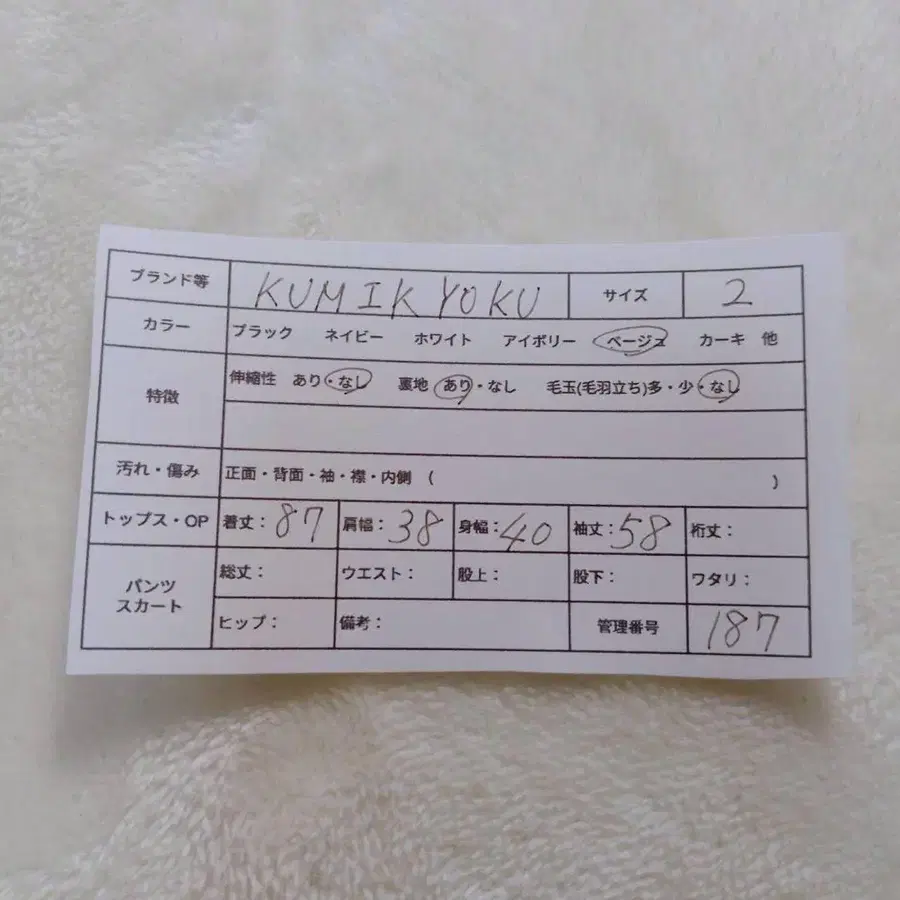 ブランド等 KUMIKYOKU サイズ 2
カラー ブラック ネイビー ホワイト アイボリー ベージュ カーキ 他
特徴 伸縮性 あり・なし 裏地 あり・なし 毛玉(毛羽立ち)多・少・なし
汚れ・傷み 正面・背面・袖・襟・内側 ( )
トップス・OP 着丈：87 肩幅：38 身幅：40 袖丈：58 裄丈：
パンツ スカート 総丈： ウエスト： 股上： 股下： ワタリ：
ヒップ： 備考： 管理番号 187